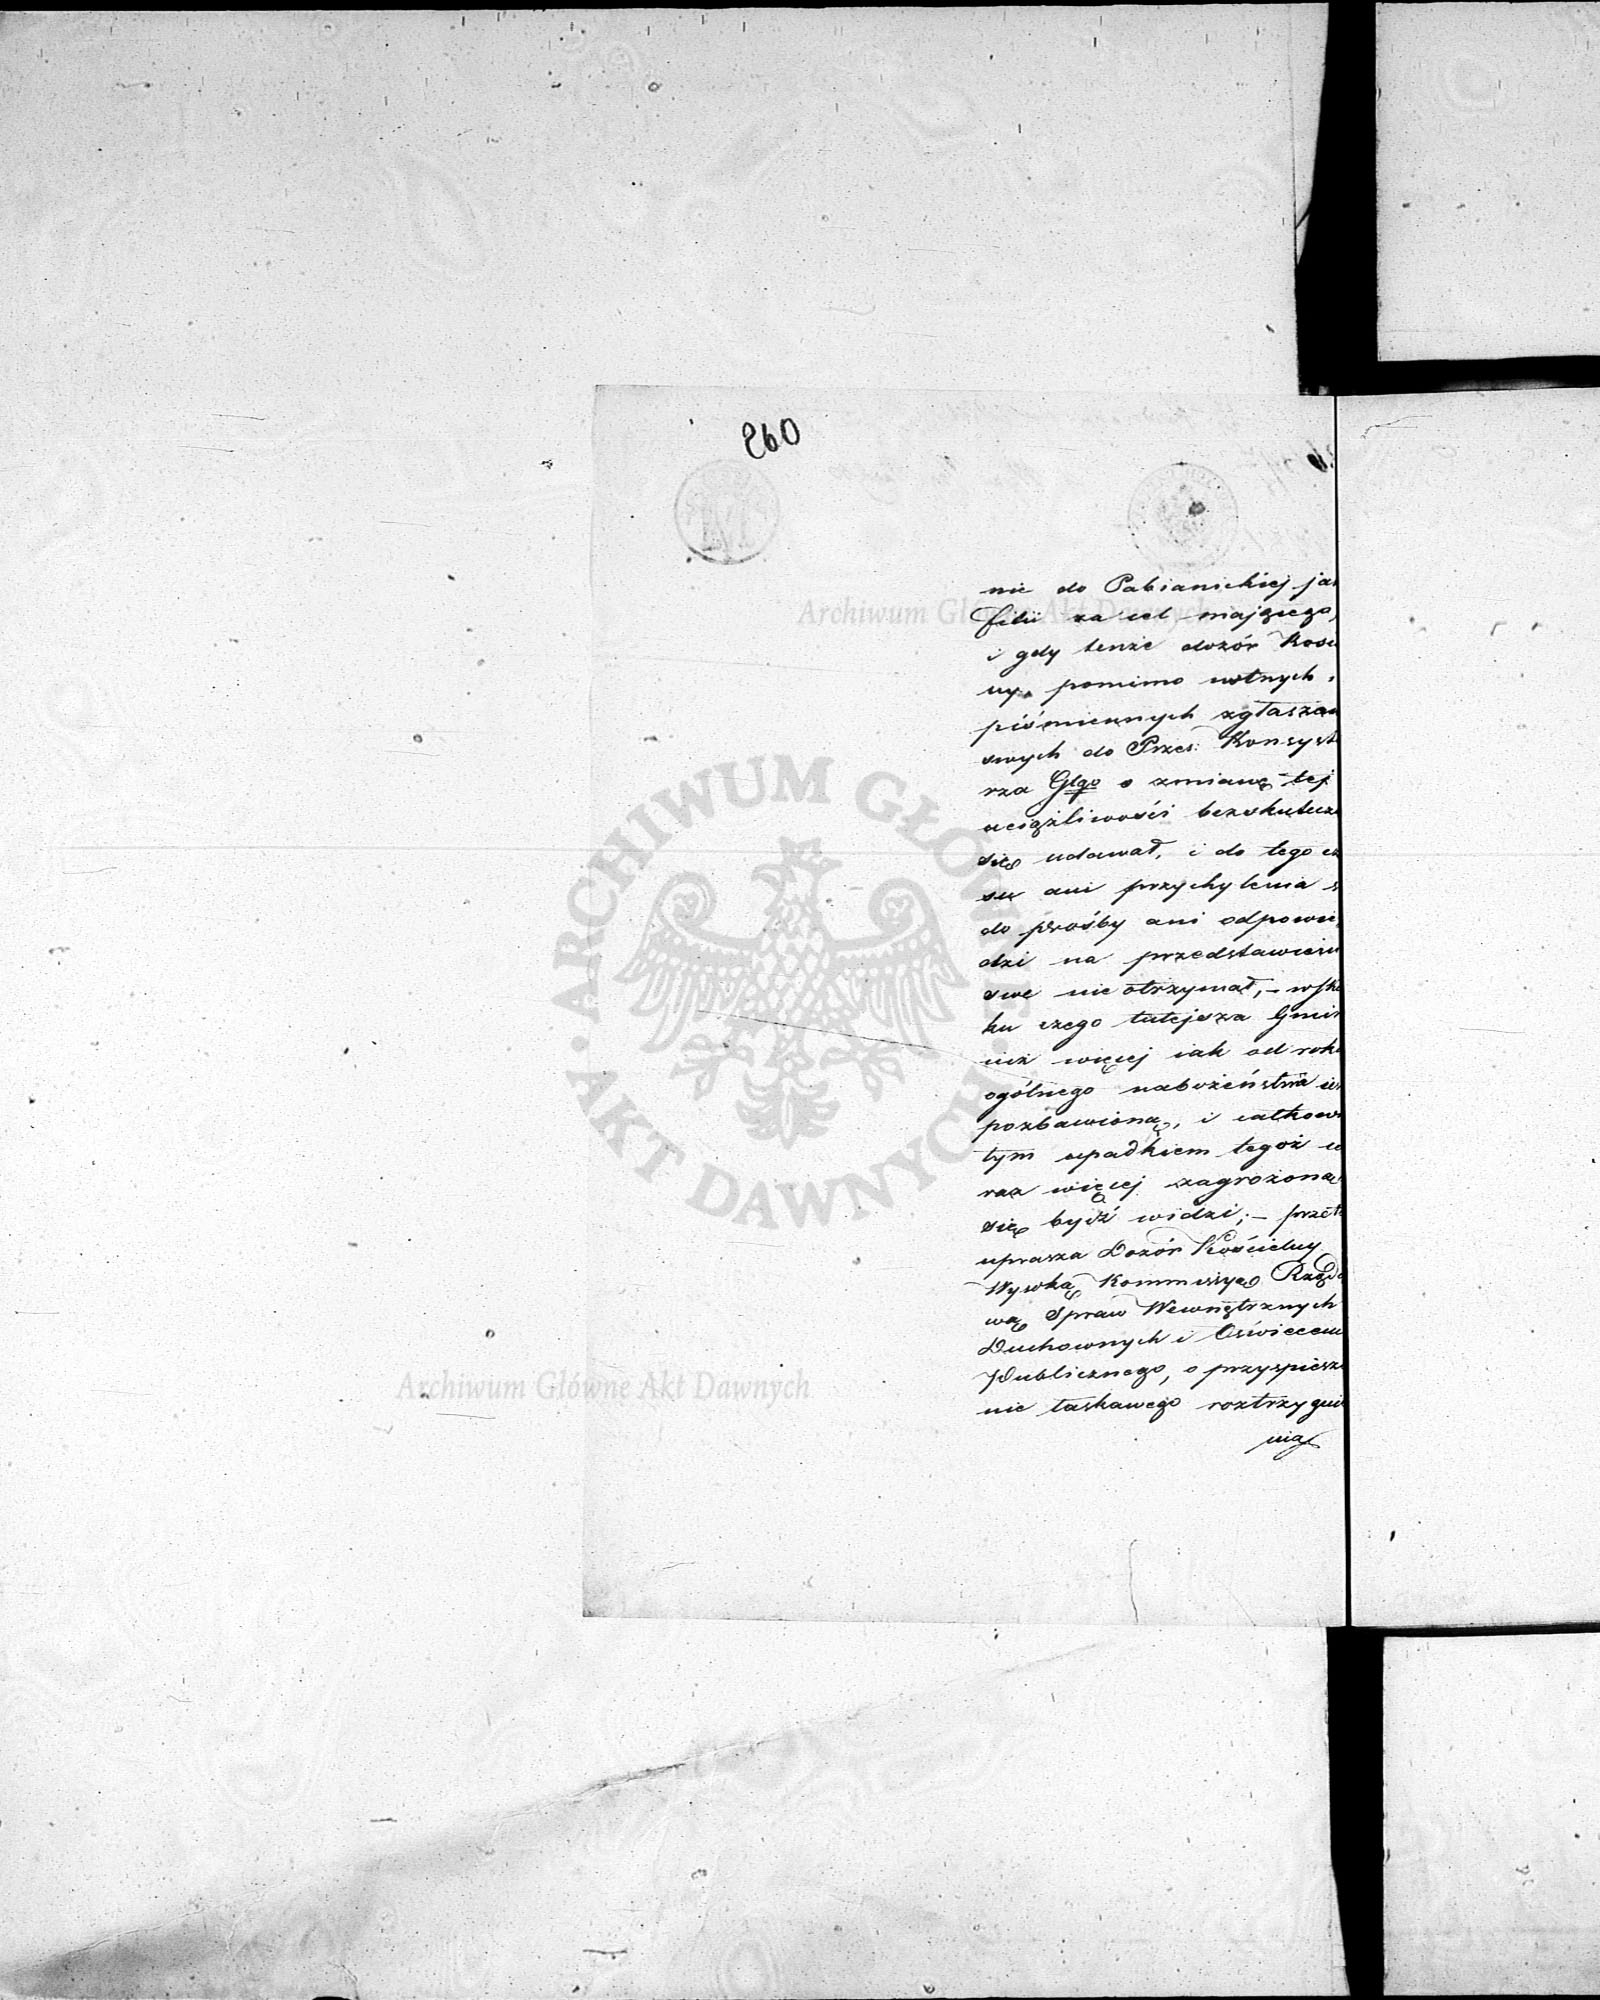 260
nie do Pabianickiej jak
filii za cel mającego,
i gdy tenże dozór Kości
ny. pomimo ustnych i
piśmiennych zgłaszań
swych do Przes: Konsysto
rza Glgo o zmianę tej
uciążliwości bezskutecz
się udawał, i do tego cza
su ani przychylenia s
do prośby ani odpowie
dzi na przedstawieni
swe nie otrzymał, – wsku
ku czego tutejsza Gmin
niż więcej jak od roku
ogólnego nabożeństwa ies
pozbawioną, i całkowi
tym upadkiem tegoż co
raz więcej zagrożoną
się bydź widzi; – przeto
uprasza Dozór Kościelny
Wysoką Kommissyą Rządo
wą Spraw Wewnętrznych
Duchownych i Oświeceni
Publicznego, o przyspiesze
nie łaskawego roztrzygnie
nia
Archiwum Główne Akt Dawnych
ARCHIWUM GŁÓWNE · AKT DAWNYCH ·
Archiwum Główne Akt Dawnych